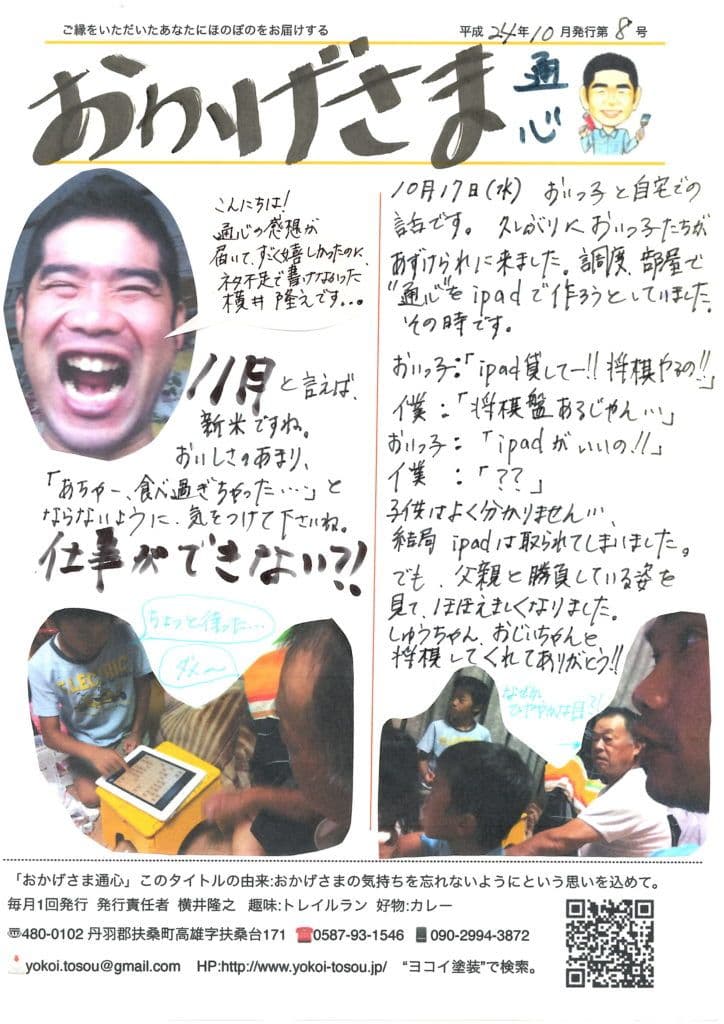 ご縁をいただいたあなたにほのぼのをお届けする
平成24年10月発行第8号
おかげさま
通心
こんにちは!
通心の感想が
届いて、すごく嬉しかったのに、
ネタ不足で書けなかった
横井 隆之です...
11月と言えば、
新米ですね。
おいしさのあまり、
「あちゃー、食べ過ぎちゃった…」と
ならないように、気をつけて下さいね。
仕事ができない?!
ちょっと待った…
ダメ〜
10月17日(水) おいっ子と自宅での
話です。久しぶりにおいっ子たちが
あずけられに来ました。調度、部屋で
"通心"をipadで作ろうとしていました。
その時です。
おいっ子:「ipad貸してー!!将棋やるの!!」
僕:「将棋盤あるじゃん…」
おいっ子:「ipadがいいの!!」
僕:「??」
子供はよく分かりません…、
結局 ipadは取られてしまいました。
でも、父親と勝負している姿を
見て、ほほえましくなりました。
しゅうちゃん、おじいちゃんと
将棋してくれてありがとう!!
なぜか
ひややかな目?!
「おかげさま通心」このタイトルの由来:おかげさまの気持ちを忘れないようにという思いを込めて。
毎月1回発行 発行責任者 横井隆之 趣味:トレイルラン 好物:カレー
〠480-0102 丹羽郡扶桑町高雄字扶桑台171 ☎0587-93-1546 090-2994-3872
yokoi.tosou@gmail.com HP:http://www.yokoi-tosou.jp/ "ヨコイ塗装"で検索。